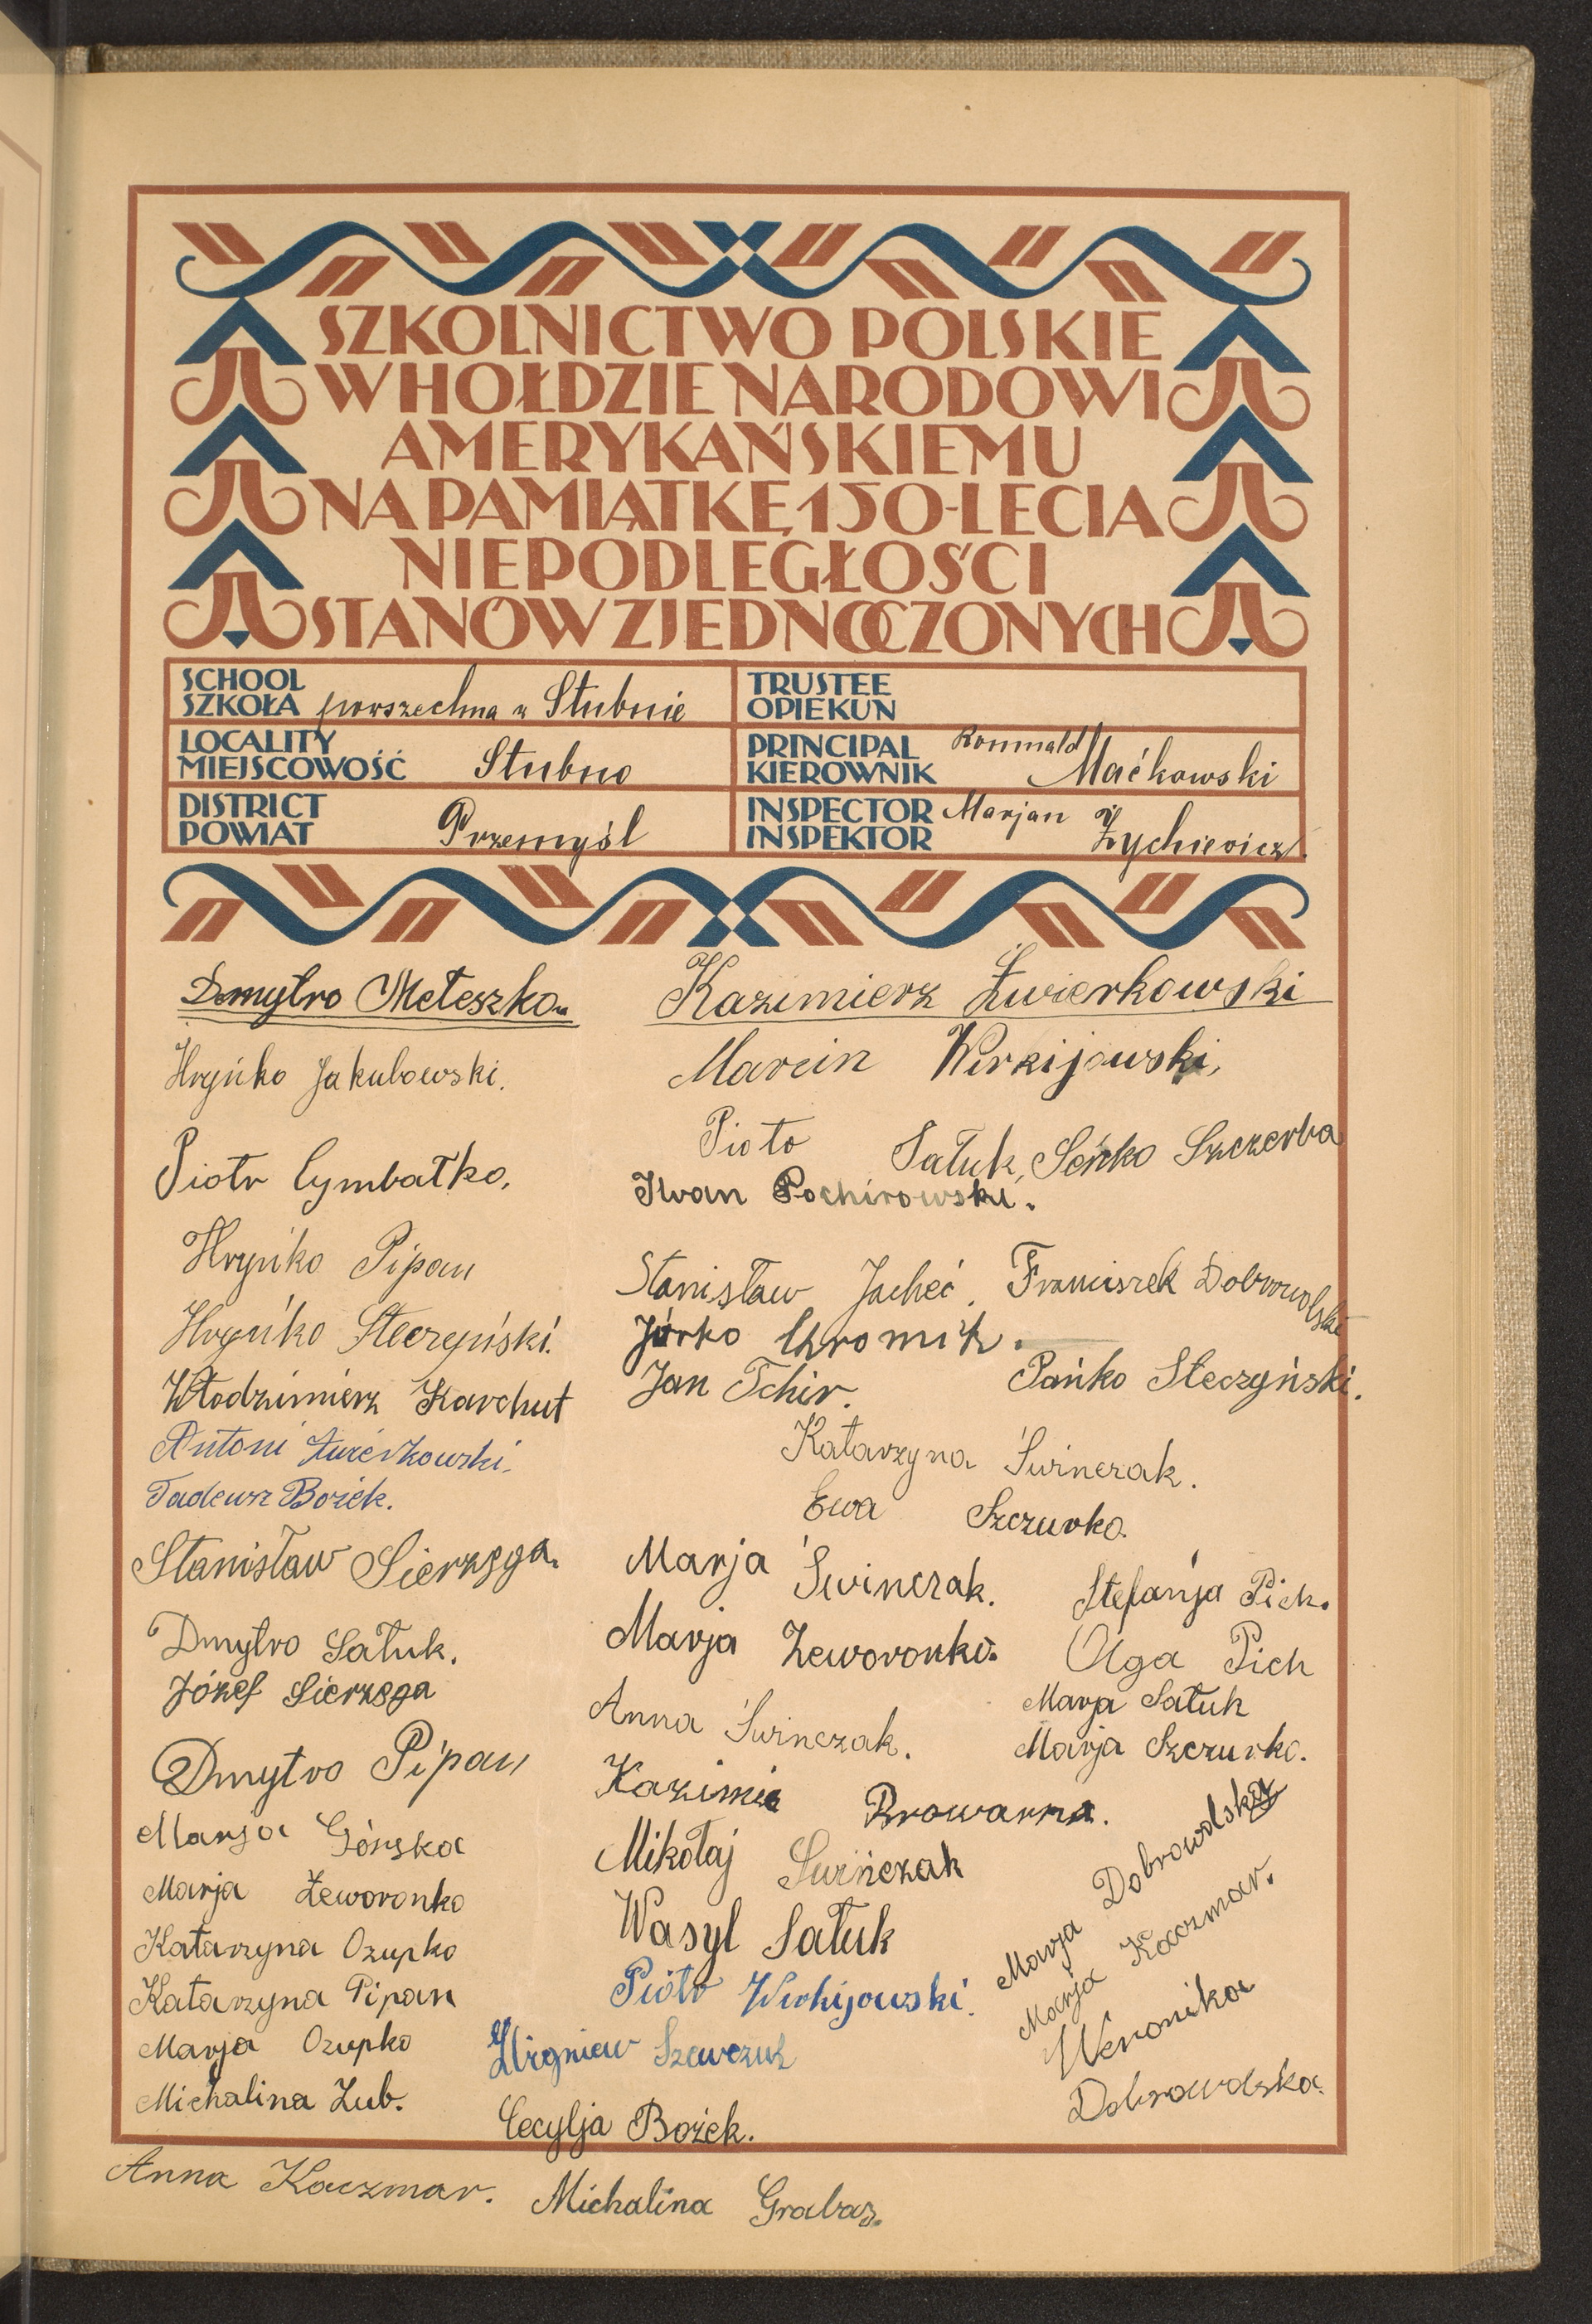 SZKOLNICTWO POLSKIE
W HOŁDZIE NARODOWI
AMERYKAŃSKIEMU
NA PAMIĄTKĘ 150-LECIA
NIEPODLEGŁOŚCI
STANÓW ZJEDNOCZONYCH
SCHOOL
SZKOŁA powszechna w Stubnie
TRUSTEE
OPIEKUN
LOCALITY
MIEJSCOWOŚĆ Stubno
PRINCIPAL
KIEROWNIK Romuald Maćkowski
DISTRICT
POWIAT Przemyśl
INSPECTOR
INSPEKTOR Marjan Żychiewicz.
Dmytro Meteszko
Hryńko Jakubowski.
Piotr Cymbałko.
Hryńko Pipan
Hryńko Steczyński.
Włodzimierz Karchut
Antoni Żwierkowski.
Tadeusz Bożek.
Stanisław Sierzęga.
Dmytro Sałuk.
Józef Sierzęga
Dmytro Pipan
Marja Górska
Marja Żeworonko
Katarzyna Ozupko
Katarzyna Pipan
Marja Ozupko
Michalina Zub.
Anna Kaczmar.
Kazimierz Żwierkowski
Marcin Wirkijowski,
Piotr Sałuk, Seńko Szczerba
Iwan Pochirowski.
Stanisław Jacheć. Franciszek Dobrowolski
Jurko Chromik.
Jan Tchir. Pańko Steczyński.
Katarzyna Świnczak.
Ewa Szczurko.
Marja Świnczak. Stefanja Pich.
Marja Żeworonko. Olga Pich
Marja Sałuk
Anna Świnczak. Marja Szczurko.
Kazimie Browarna.
Mikołaj Świńczak
Wasyl Sałuk
Piotr Wirkijowski.
Zbigniew Szewczuk
Cecylja Bożek.
Michalina Grabas.
Marja Dobrowolska
Marja Kaczmar.
Weronika
Dobrowolska.